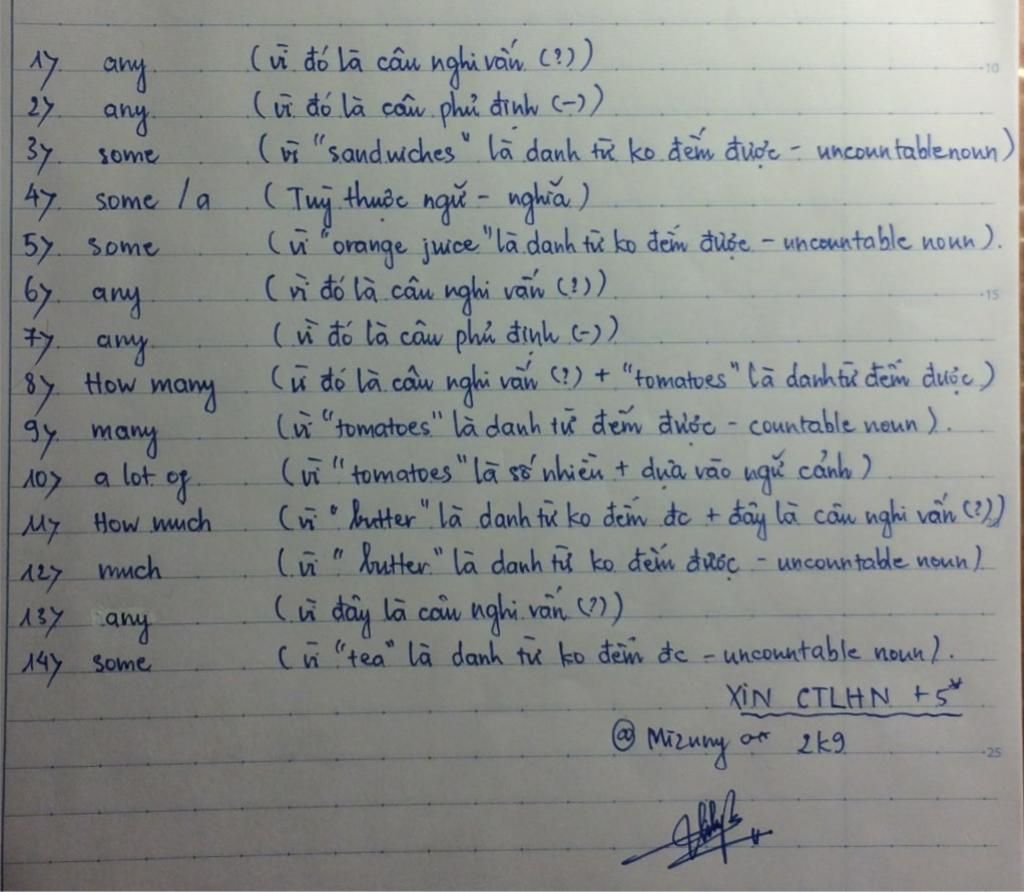 1) any (vì đó là câu nghi vấn (?))
2) any (vì đó là câu phủ định (-))
3) some (vì "sandwiches" là danh từ ko đếm được - uncountable noun)
4) some / a (Tuỳ thuộc ngữ - nghĩa)
5) some (vì "orange juice" là danh từ ko đếm được - uncountable noun).
6) any (vì đó là câu nghi vấn (?))
7) any (vì đó là câu phủ định (-))
8) How many (vì đó là câu nghi vấn (?) + "tomatoes" là danh từ đếm được)
9) many (vì "tomatoes" là danh từ đếm được - countable noun).
10) a lot of (vì "tomatoes" là số nhiều + dựa vào ngữ cảnh)
11) How much (vì "butter" là danh từ ko đếm đc + đây là câu nghi vấn (?))
12) much (vì "butter" là danh từ ko đếm được - uncountable noun)
13) any (vì đây là câu nghi vấn (?))
14) some (vì "tea" là danh từ ko đếm đc - uncountable noun).
XiN CTLHN + 5*
@ Mizuny 2k9
10
15
25